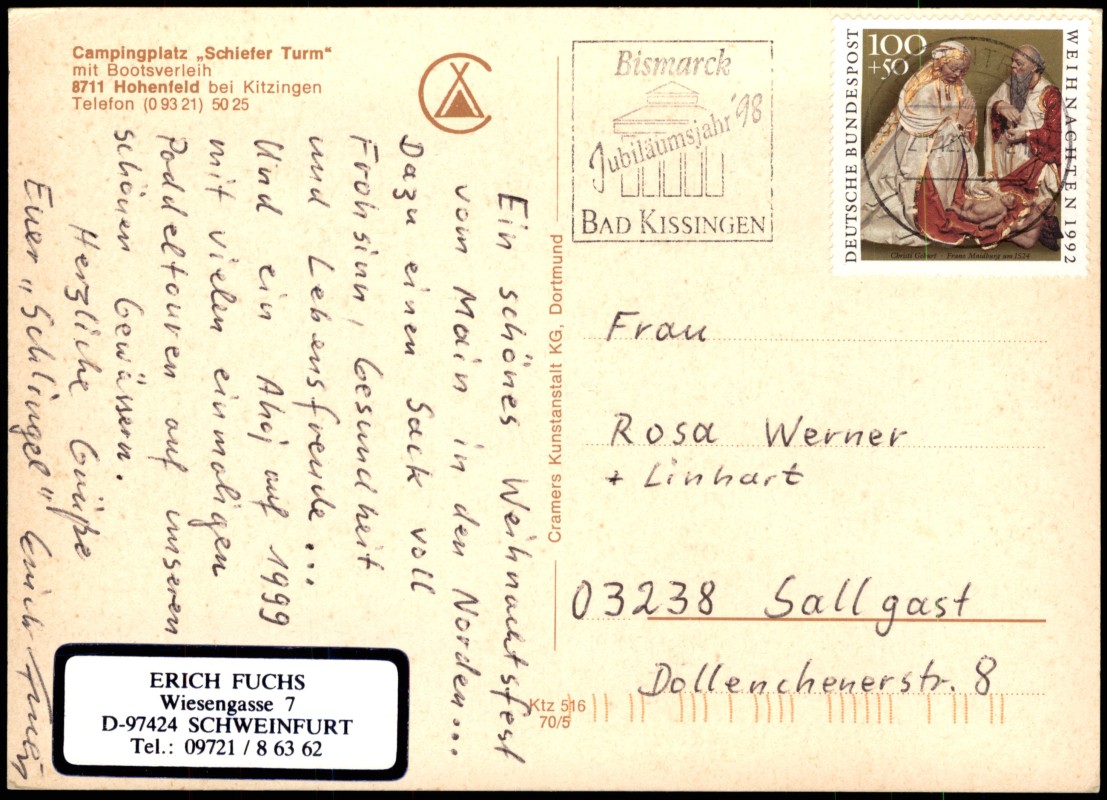 Campingplatz „Schiefer Turm“
mit Bootsverleih
8711 Hohenfeld bei Kitzingen
Telefon (0 93 21) 50 25
Ein schönes Weihnachtsfest
vom Main in den Norden...
Dazu einen Sack voll
Frohsinn, Gesundheit
und Lebensfreude...
Und ein Ahoj auf 1999
mit vielen einmaligen
Paddeltouren auf unseren
schönen Gewässern.
Herzliche Grüße
Euer „Schlingel“ Erich Fuchs
ERICH FUCHS
Wiesengasse 7
D-97424 SCHWEINFURT
Tel.: 09721 / 8 63 62
Cramers Kunstanstalt KG, Dortmund
Ktz 516
70/5
Bismarck
Jubiläumsjahr '98
BAD KISSINGEN
100
+50
DEUTSCHE BUNDESPOST
WEIHNACHTEN 1992
Christi Geburt · Franz Maidburg um 1524
Frau
Rosa Werner
+ Linhart
03238 Sallgast
Dollenchenerstr. 8